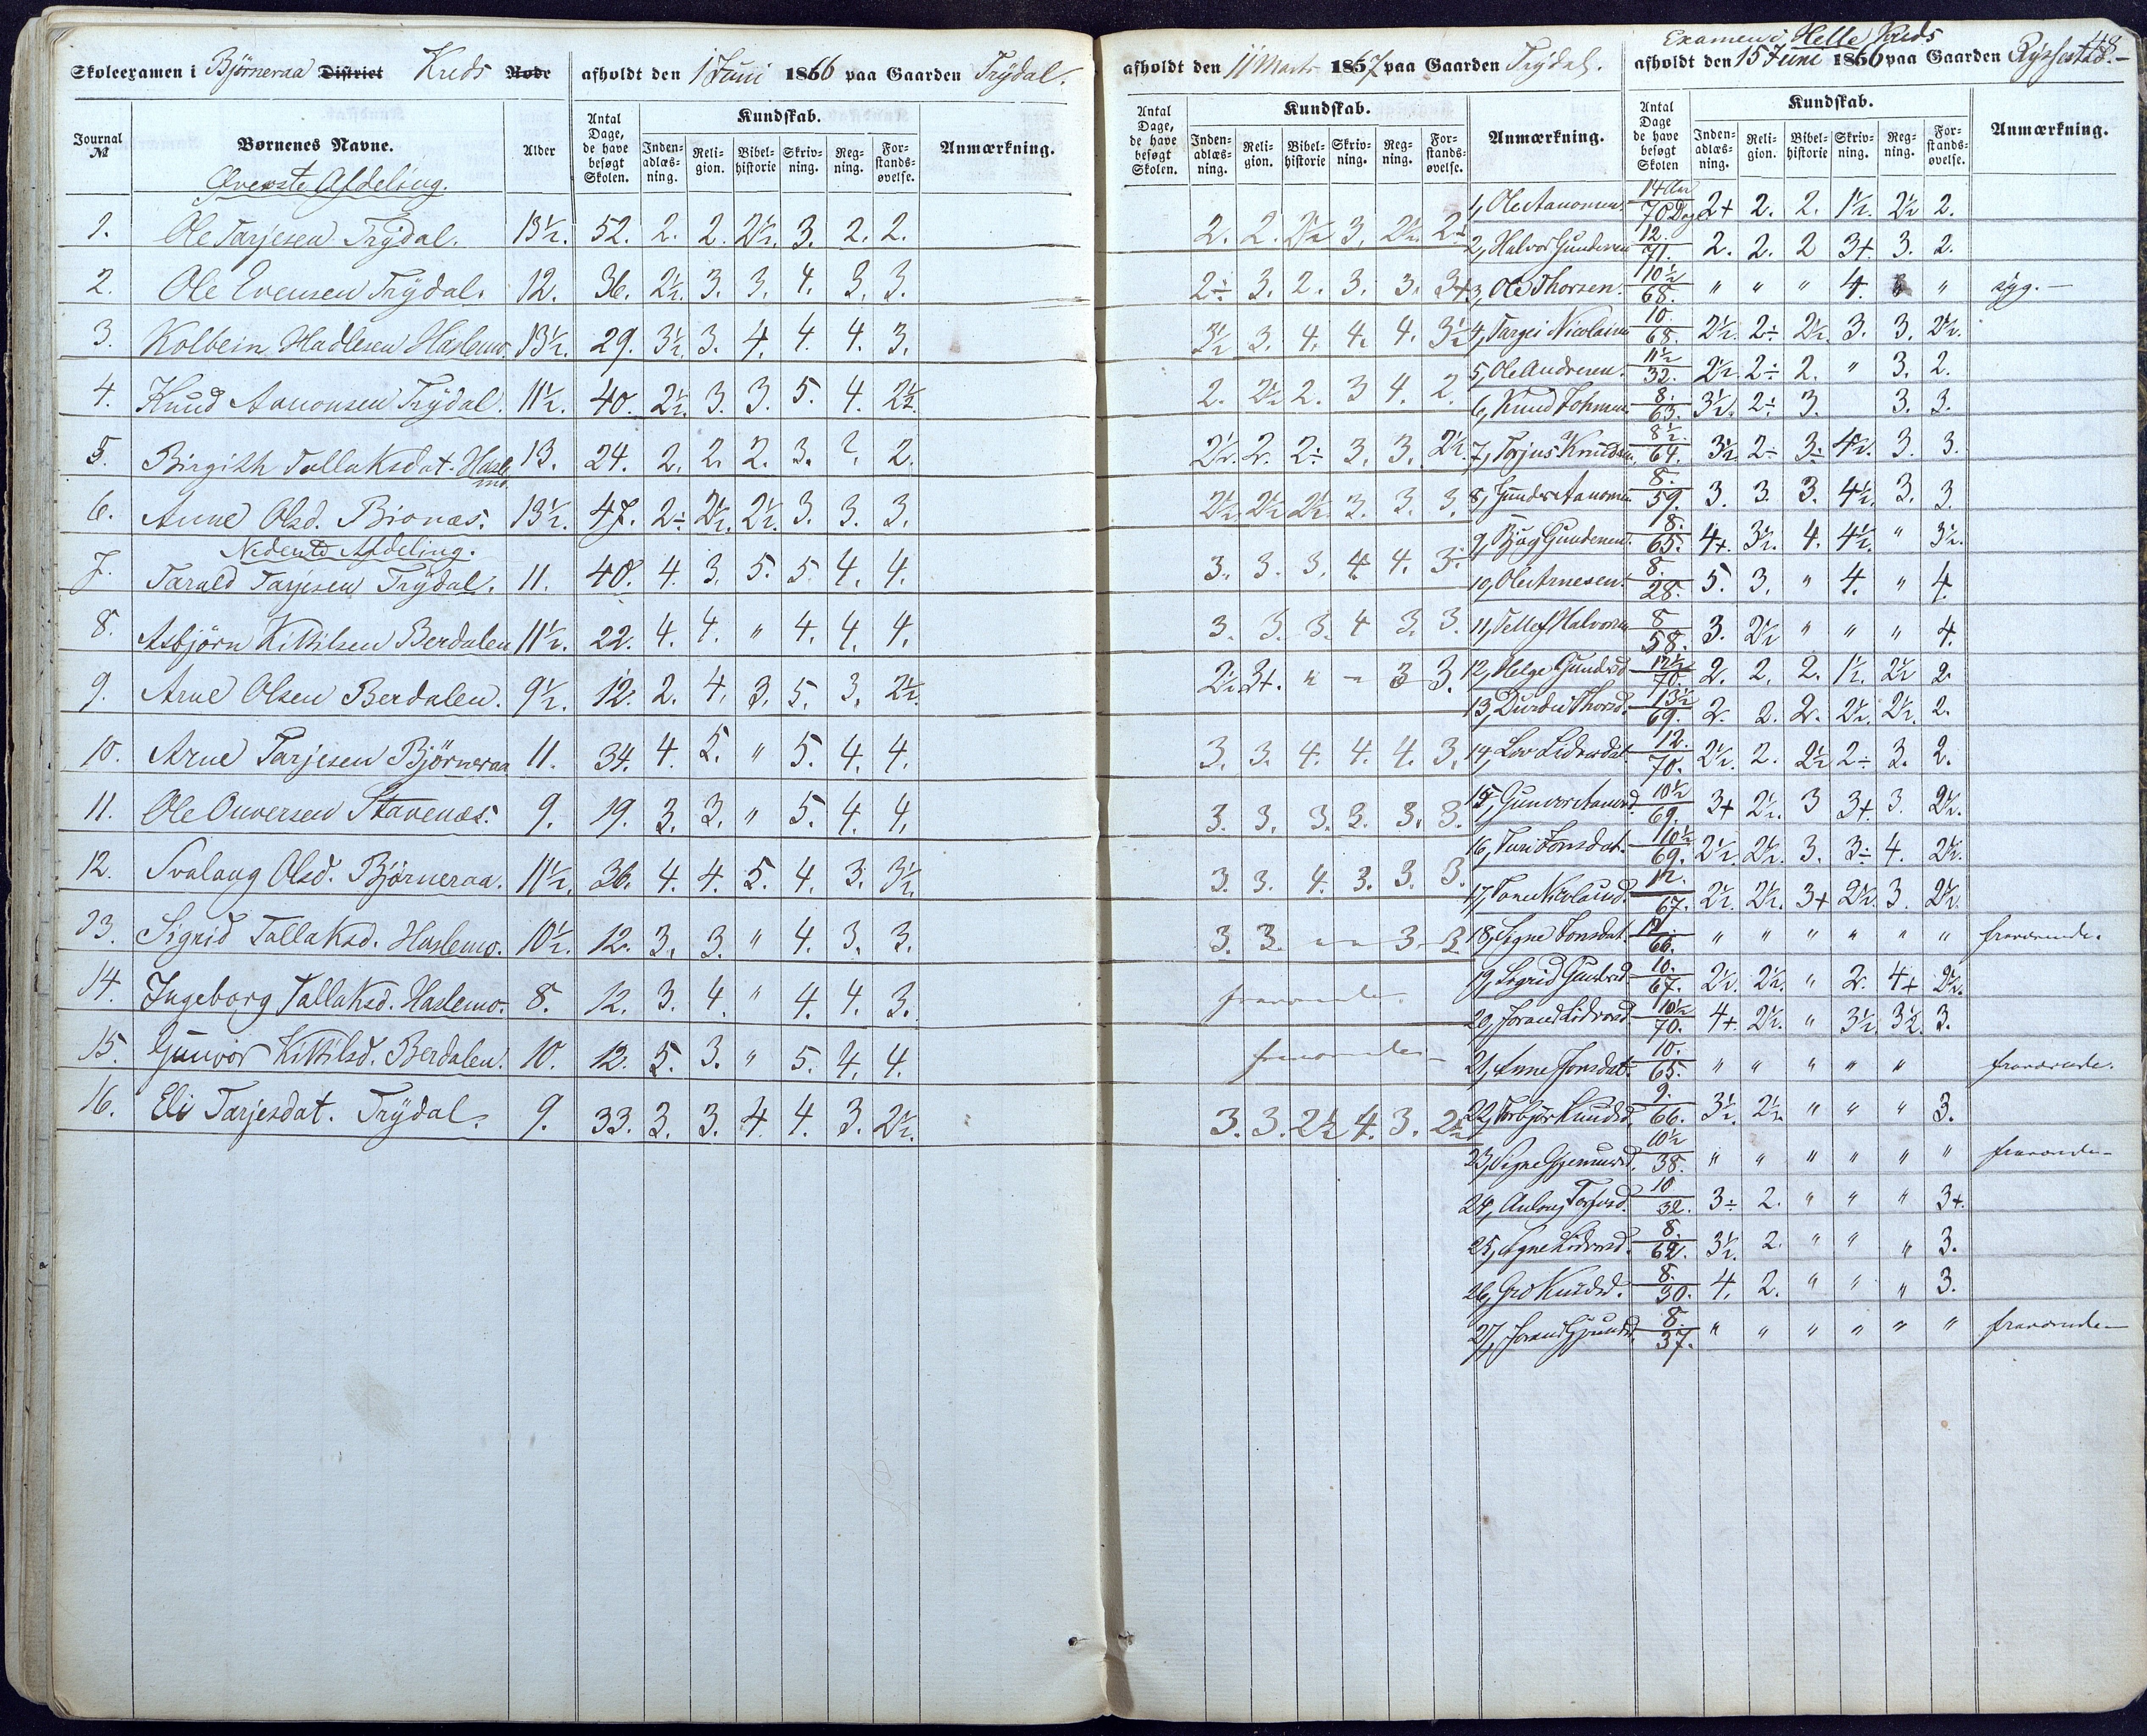 Skoleexamen i Bjørneraa District Kreds Rode afholdt den 1 Juni 1866 paa Gaarden Trydal.
Journal № Børnenes Navne. Alder Antal Dage, de have besøgt Skolen. Kundskab. Inden-adlæs-ning. Reli-gion. Bibel-historie Skriv-ning. Reg-ning. For-stands-øvelse. Anmærkning.
Øverste Afdeling.
1. Ole Tarjesen Trydal. 13½. 52. 2. 2. 2½. 3. 2. 2.
2. Ole Evensen Trydal. 12. 36. 2½. 3. 3. 4. 3. 3.
3. Kolbein Hadlesen Haslemo. 13½. 29. 3½. 3. 4. 4. 4. 3.
4. Knud Aanonsen Trydal. 11½. 40. 2½. 3. 3. 5. 4. 2½.
5. Birgith Tallaksdat. Haslemo. 13. 24. 2. 2. 2. 3. 2. 2.
6. Anne Olsd. Bionæs. 13½. 47. 2÷ 2½. 2½. 3. 3. 3.
Nederste Afdeling.
7. Tarald Tarjesen Trydal. 11. 40. 4. 3. 5. 5. 4. 4.
8. Asbjørn Kittilsen Berdalen 11½. 22. 4. 4. " 4. 4. 4.
9. Arne Olsen Berdalen. 9½. 12. 2. 4. 3. 5. 3. 2½.
10. Arne Tarjesen Bjørneraa 11. 34. 4. 5. " 5. 4. 4.
11. Ole Onversen Stavenæs. 9. 19. 3. 3. " 5. 4. 4.
12. Svalaug Olsd. Bjørneraa. 11½. 36. 4. 4. 5. 4. 3. 3½.
13. Sigrid Tallaksd. Haslemo. 10½. 12. 3. 3. " 4. 3. 3.
14. Ingeborg Tallaksd. Haslemo. 8. 12. 3. 4. " 4. 4. 3.
15. Gunvor Kittilsd. Berdalen. 10. 12. 5. 3. " 5. 4. 4.
16. Eli Tarjesdat. Trydal. 9. 33. 3. 3. 4. 4. 3. 2½.
afholdt den 11 Marts 1867 paa Gaarden Trydal.
Antal Dage, de have besøgt Skolen. Kundskab. Inden-adlæs-ning. Reli-gion. Bibel-historie Skriv-ning. Reg-ning. For-stands-øvelse. Anmærkning.
2. 2. 2½ 3. 2½. 2÷
2÷ 3. 2. 3. 3. 3+
3½ 3. 4. 4. 4. 3½
2. 2½ 2. 3 4. 2.
2½. 2. 2÷ 3. 3. 2½.
2½. 2½ 2½. 3. 3. 3.
3. 3. 3. 4. 4. 3÷
3. 3. 3. 4 3. 3.
2½ 3+. " – 3 3.
3. 3. 4. 4. 4. 3.
3. 3. 3. 3. 3. 3.
3. 3. 4. 3. 3. 3.
3. 3. – – 3. 3.
fraværende.
fraværende
3. 3. 2½ 4. 3. 2½
Examen i Helle Kreds
48
afholdt den 15 Juni 1866 paa Gaarden Rysfestad.
Antal Dage de have besøgt Skolen Kundskab. Inden-adlæs-ning. Reli-gion. Bibel-historie Skriv-ning. Reg-ning. For-stands-øvelse. Anmærkning.
1, Ole Aanonsen. 14 Aar 70 Dag 2+ 2. 2. 1½. 2½ 2.
2, Halvor Gundersen 12. 71. 2. 2. 2 3+ 3. 2.
3, Ole Thorsen. 10½ 68. " " " 4. " " syg.
4, Targei Nicolaisen 10. 68. 2½. 2÷ 2½. 3. 3. 2½.
5, Ole Andresen. 11½ 32. 2½. 2÷ 2. " 3. 2.
6, Knud Johnsen 8. 63. 3½. 2÷ 3. 3. 3.
7, Torjus Knudsen. 8½. 64. 3½ 2÷ 3÷ 4½. 3. 3.
8, Gunder Aanonsen 8. 59. 3. 3. 3. 4½. 3. 3.
9, Gundersen. 8. 65. 4+. 3½. 4. 4½. " 3½.
10, Ole Arnesen. 8. 28. 5. 3. " 4. " 4.
11, Tellef Halvorsen 8 58. 3. 2½ " " " 4.
12, Helge Gundersd. 12½ 70. 2. 2. 2. 1½. 2½ 2.
13, Durdei Thorsd. 13½ 69. 2. 2. 2. 2½. 2½. 2.
14, Liv Lidvordat. 12. 70. 2½. 2. 2½ 2÷ 3. 2.
15, Gunvor Aanonsd. 10½ 69. 3+ 2½. 3 3+. 3. 2½.
16, Turi Jonsdat. 10½ 69. 2½. 2½. 3. 3÷ 4. 2½.
17, 12. 67. 2½. 2½. 3+ 2½. 3. 2½.
18, Signe Jonsdat. 12 66. " " " " " " fraværende.
19, Sigrid Gundersd. 10. 67. 2½. 2½. " 2. 4+ 2½.
20, Jorand Lidvorsd. 10½ 70. 4+. 2½. " 3½ 3½. 3.
21, Anne Jonsdat. 10. 65. " " " " " fraværende.
22, Torbjør Knudsd. 9. 66. 3½. 2½. " " " 3.
23, Signe 10½ 38. " " " " " " fraværende
24, Aulaug Torjusd. 10 32. 3÷ 2. " " " 3+.
25, Signe Lidvorsd. 8. 62. 3½. 2. " " " 3.
26, Gro Knudsd. 8. 30. 4. 2. " " " 3.
27, Jorand 8. 37. " " " " " " fraværende